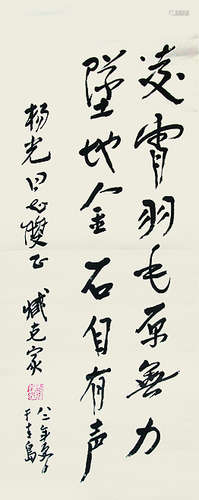 凌霄羽毛原無力
墜地金石自有声
杨光同志雙正
臧克家
八二年夏
于青島